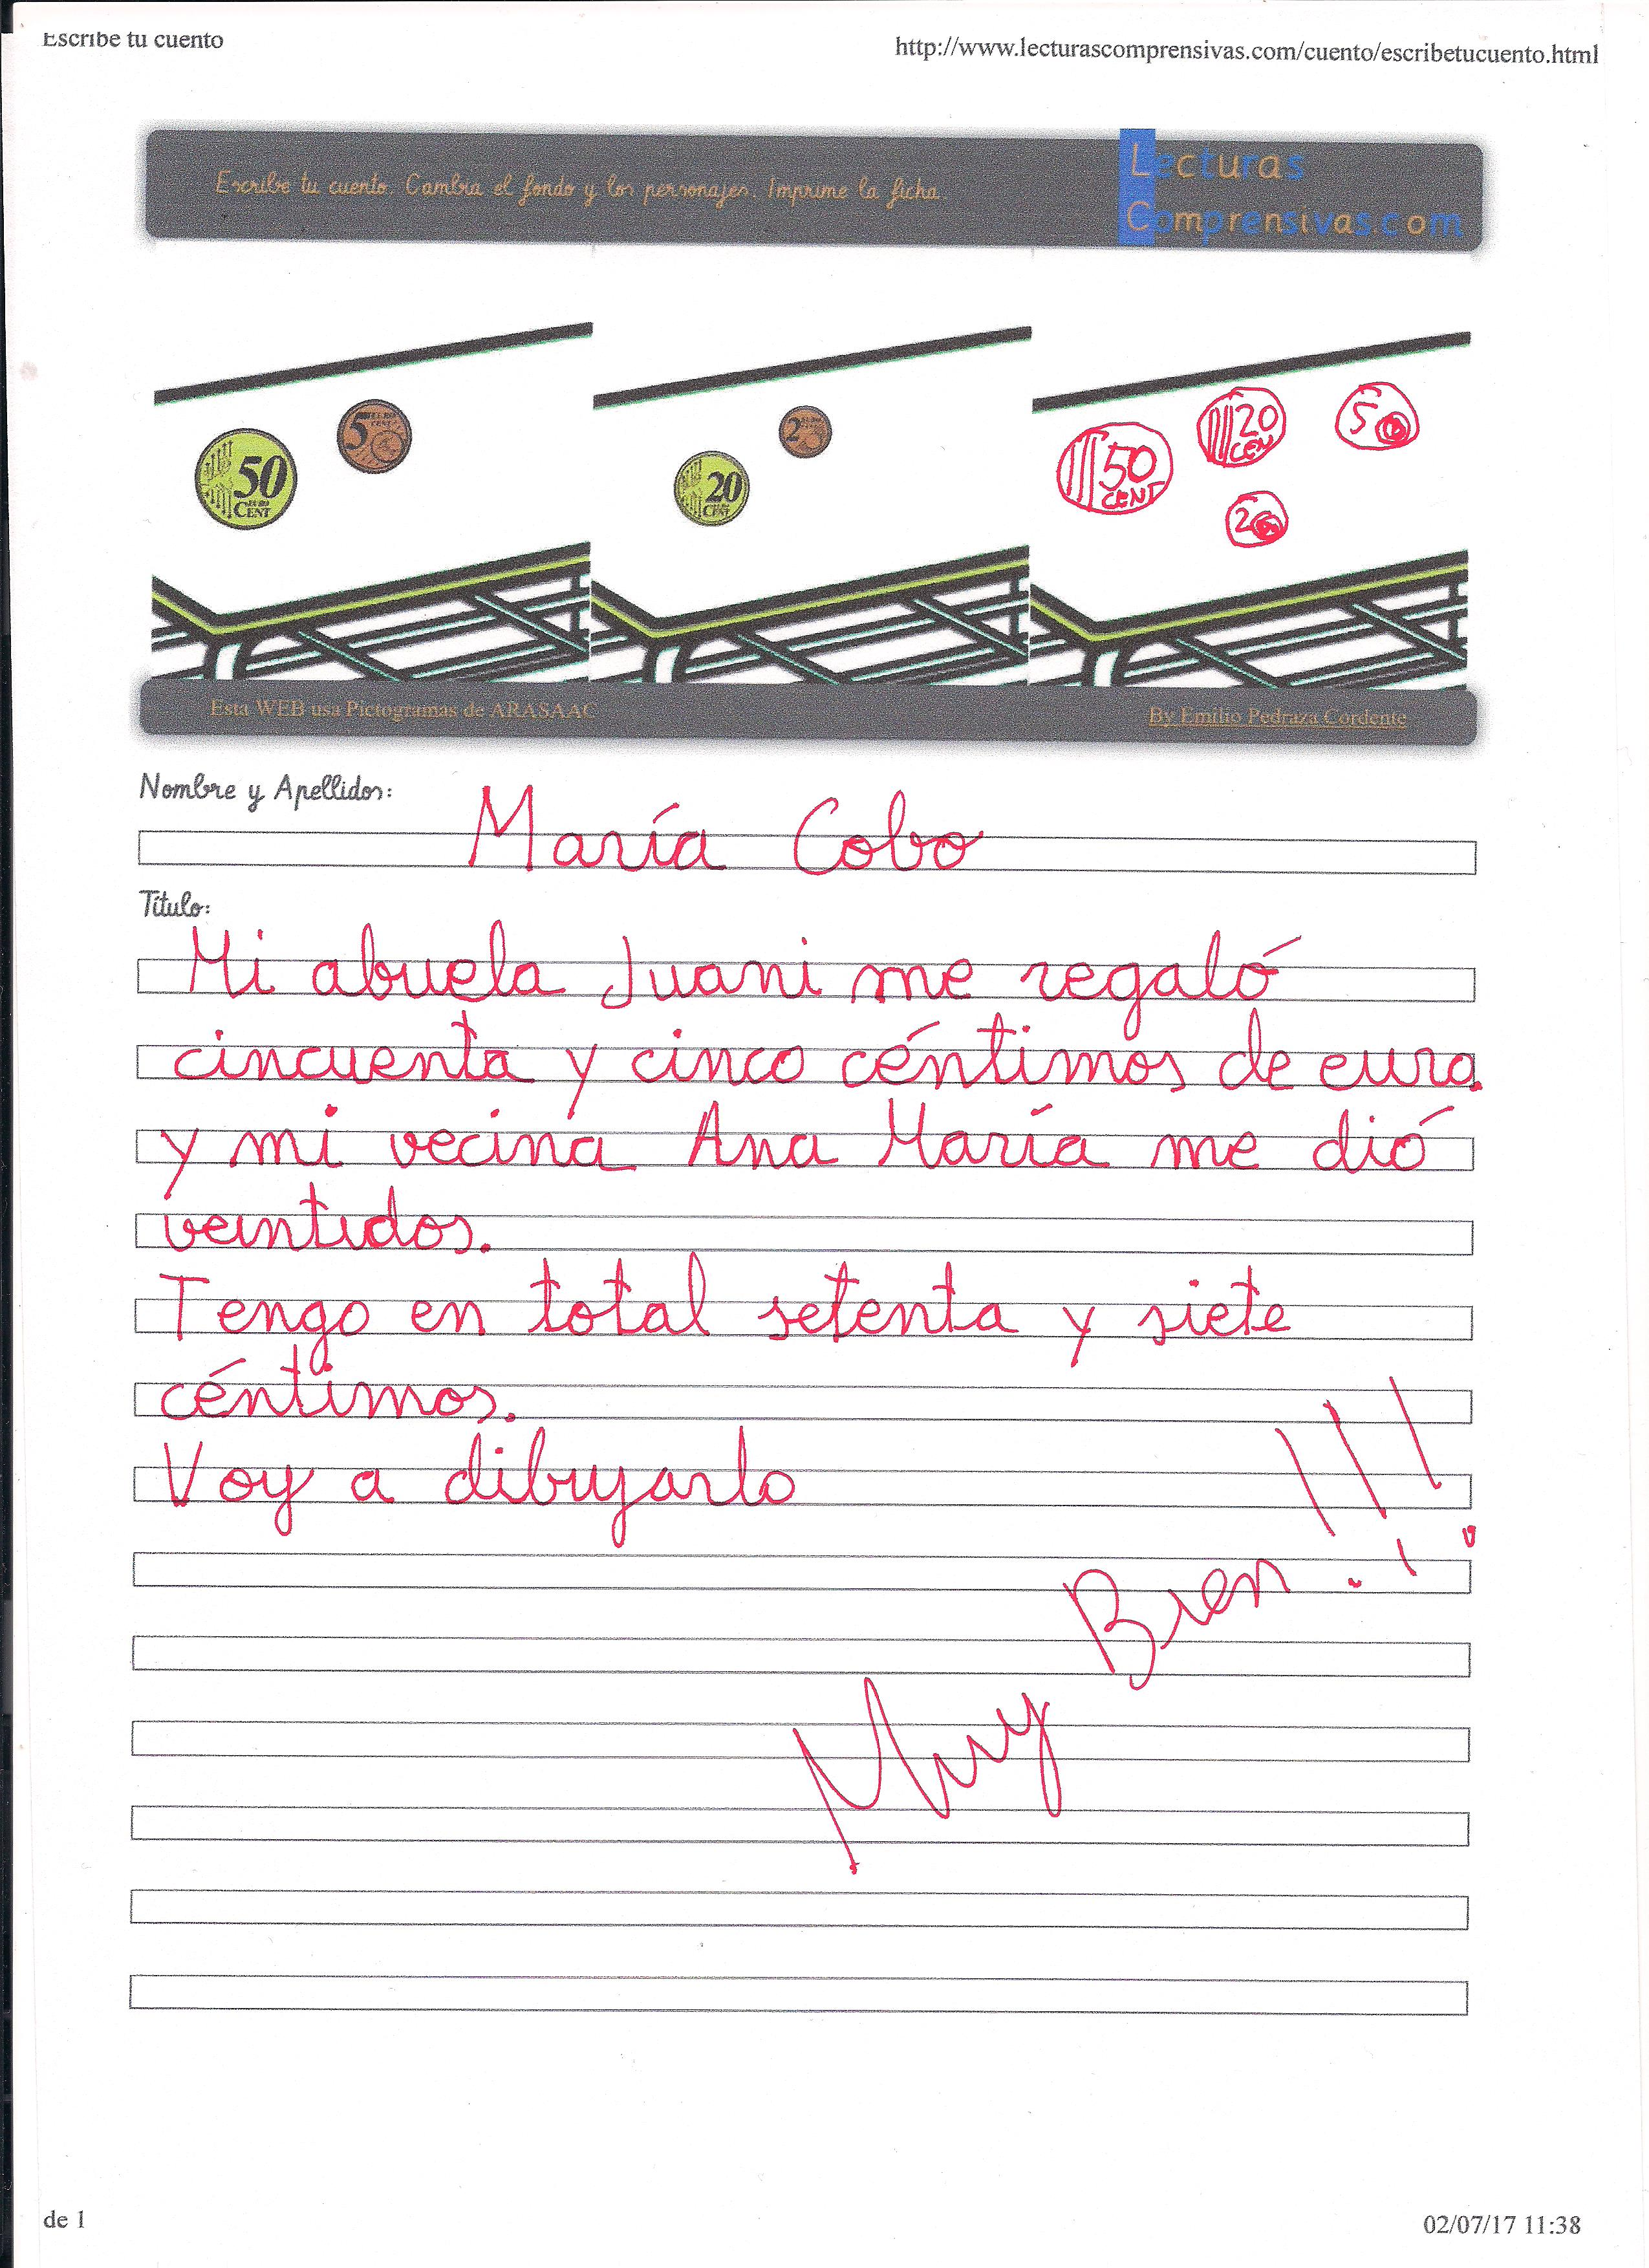 Escribe tu cuento
http://www.lecturascomprensivas.com/cuento/escribetucuento.html
Escribe tu cuento. Cambia el fondo y los personajes. Imprime la ficha.
Lecturas
Comprensivas.com
50 EURO CENT
5 EURO CENT
20 EURO CENT
2 EURO CENT
50 CENT
20 CEN
5
2
Esta WEB usa Pictogramas de ARASAAC
By Emilio Pedraza Cordente
Nombre y Apellidos:
María Cobo
Título:
Mi abuela Juani me regaló
cincuenta y cinco céntimos de euro
y mi vecina Ana María me dió
veintidos.
Tengo en total setenta y siete
céntimos.
Voy a dibujarlo
Muy Bien!!!
de 1
02/07/17 11:38